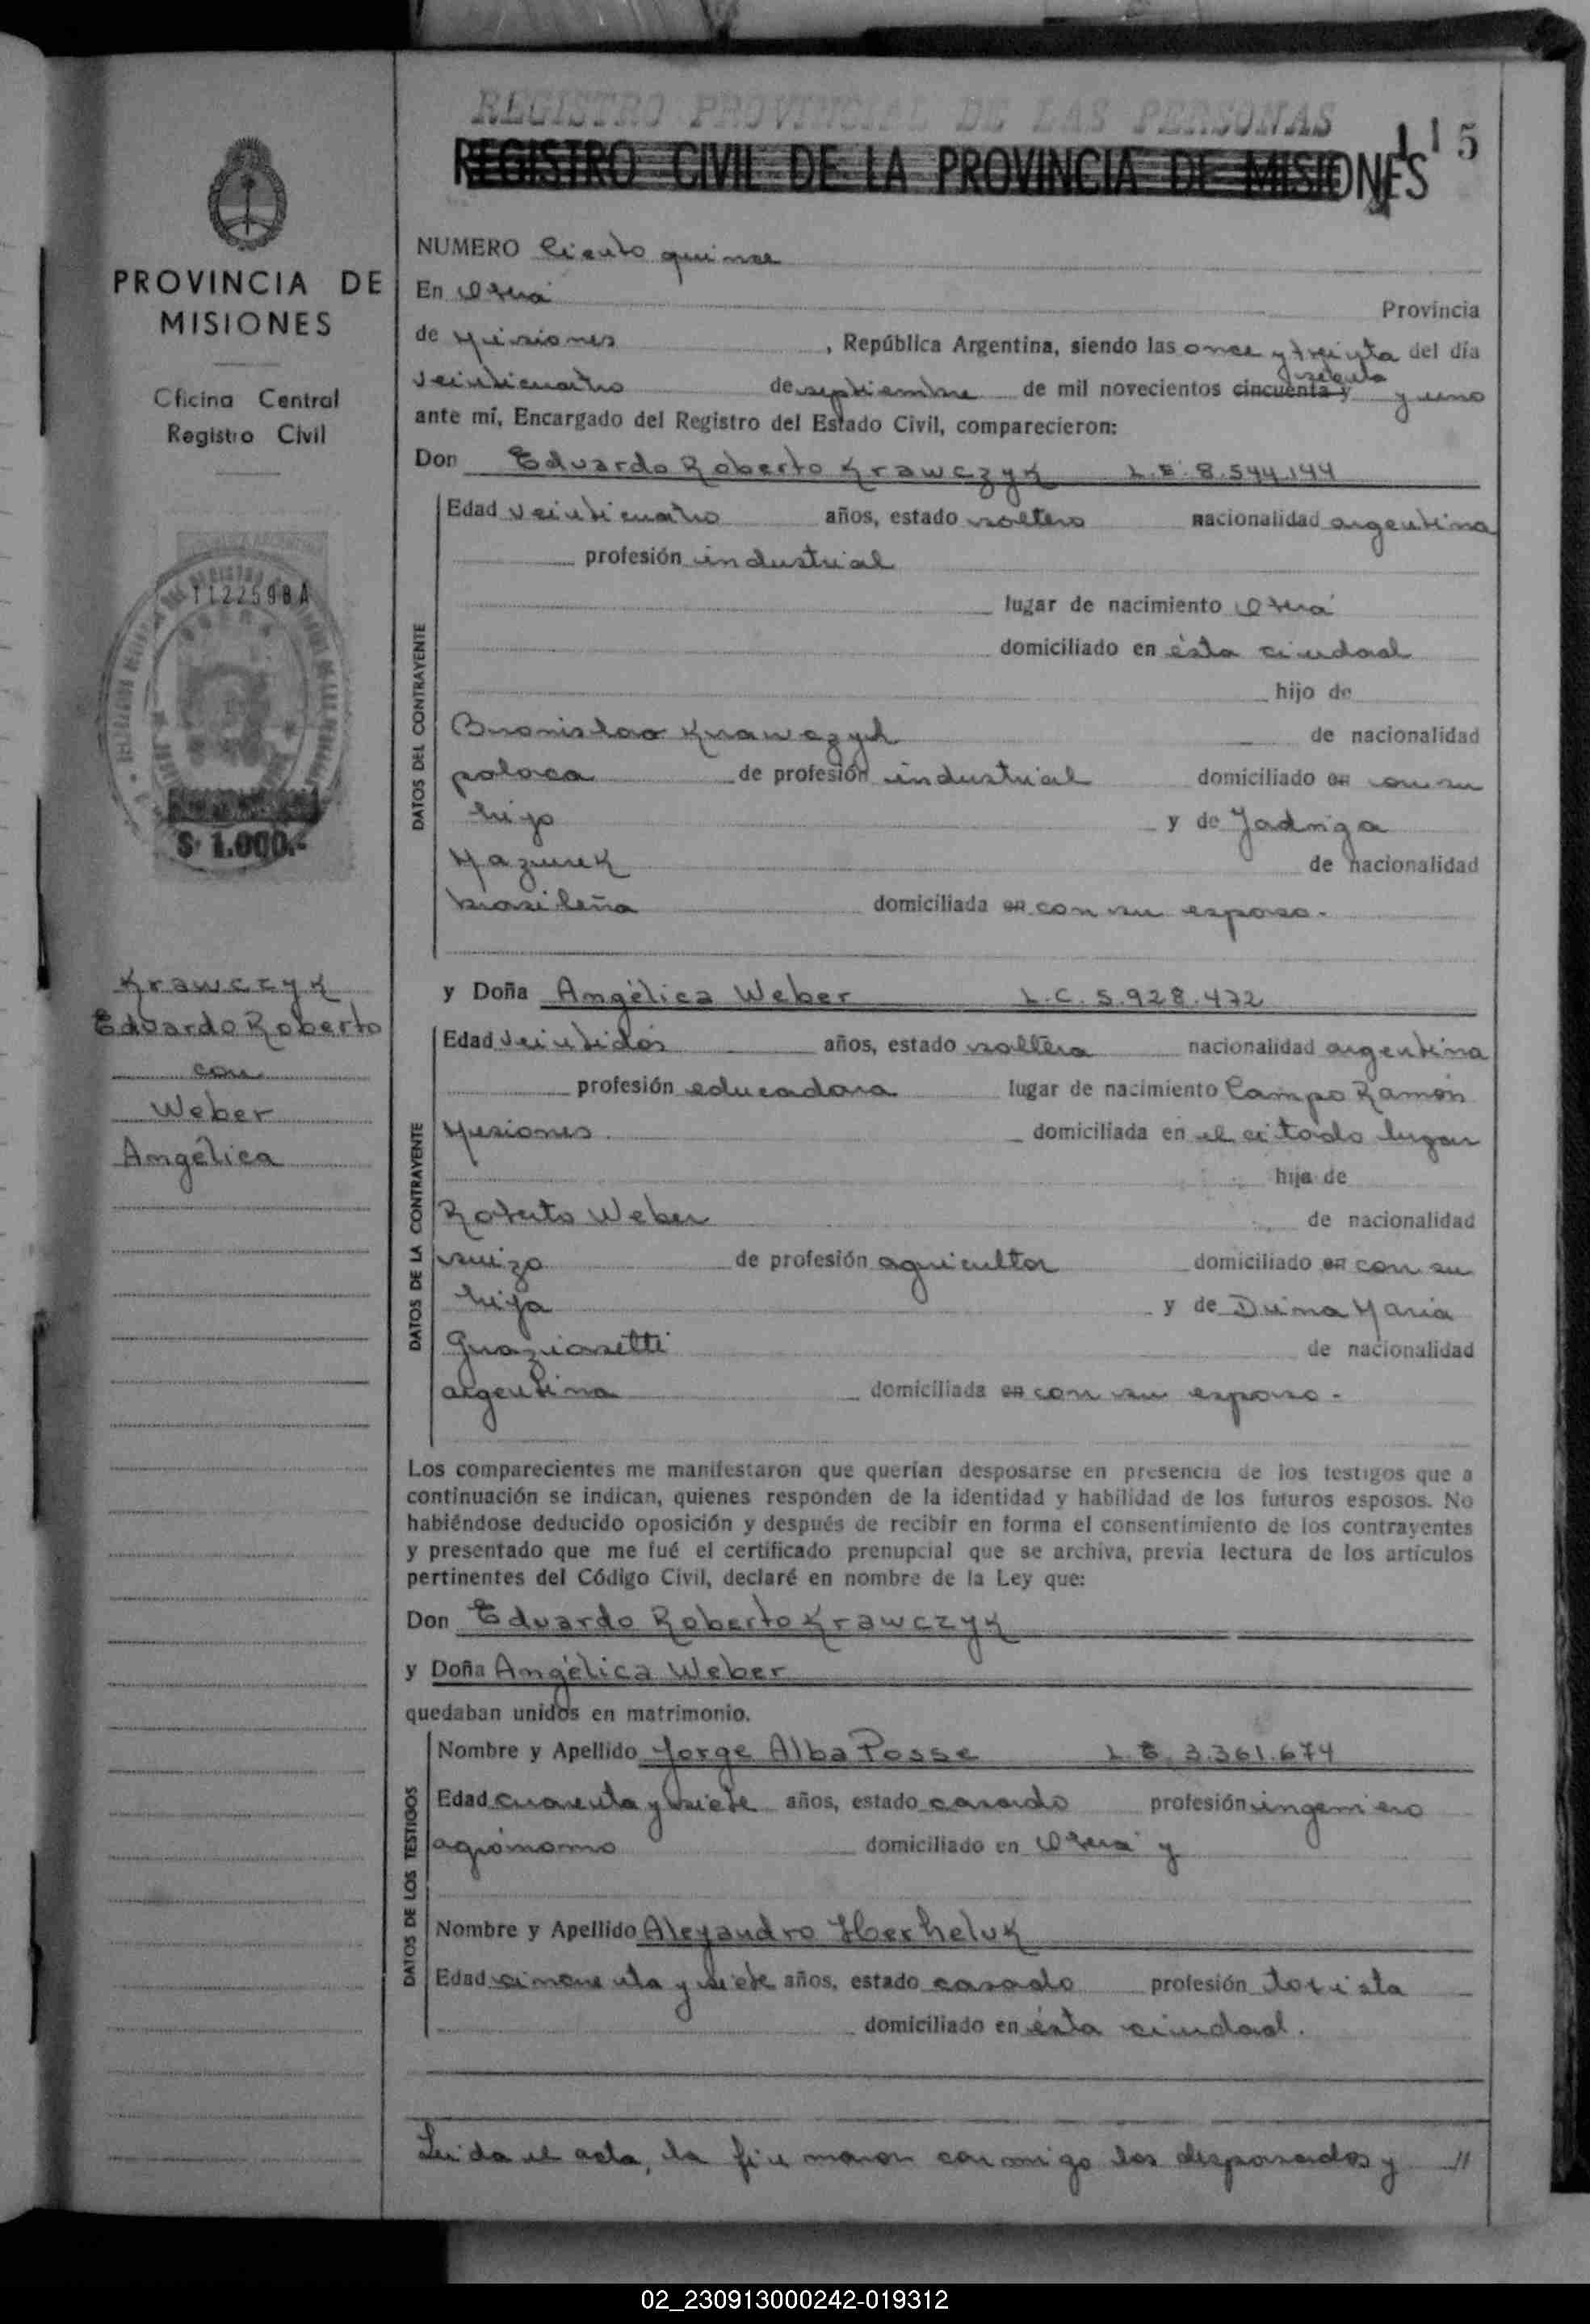 REGISTRO PROVINCIAL DE LAS PERSONAS
REGISTRO CIVIL DE LA PROVINCIA DE MISIONES
115
PROVINCIA DE
MISIONES
Oficina Central
Registro Civil
1122598A
$ 1.000.-
Krawczyk
Eduardo Roberto
con
Weber
Angélica
NUMERO Ciento quince
En Oberá Provincia
de Misiones, República Argentina, siendo las once y treinta del día
sesenta
veinticuatro de septiembre de mil novecientos cincuenta y y uno
ante mí, Encargado del Registro del Estado Civil, comparecieron:
Don Eduardo Roberto Krawczyk L.E. 8.544.144
DATOS DEL CONTRAYENTE
Edad veinticuatro años, estado soltero nacionalidad argentina
profesión industrial
lugar de nacimiento Oberá
domiciliado en ésta ciudad
hijo de
Bronislao Krawczyk de nacionalidad
polaca de profesión industrial domiciliado en con su
hijo y de Jadriga
Mazurek de nacionalidad
brasileña domiciliada en con su esposo.
y Doña Angélica Weber L.C. 5.928.472
DATOS DE LA CONTRAYENTE
Edad veintidós años, estado soltera nacionalidad argentina
profesión educadora lugar de nacimiento Campo Ramón
Misiones. domiciliada en el citado lugar
hija de
Roberto Weber de nacionalidad
suizo de profesión agricultor domiciliado en con su
hija y de Duina Maria
Graziosetti de nacionalidad
argentina domiciliada en con su esposo.
Los comparecientes me manifestaron que querían desposarse en presencia de los testigos que a
continuación se indican, quienes responden de la identidad y habilidad de los futuros esposos. No
habiéndose deducido oposición y después de recibir en forma el consentimiento de los contrayentes
y presentado que me fué el certificado prenupcial que se archiva, previa lectura de los artículos
pertinentes del Código Civil, declaré en nombre de la Ley que:
Don Eduardo Roberto Krawczyk
y Doña Angélica Weber
quedaban unidos en matrimonio.
DATOS DE LOS TESTIGOS
Nombre y Apellido Jorge Alba Posse L.E. 3.361.674
Edad cuarenta y siete años, estado casado profesión ingeniero
agrónomo domiciliado en Oberá y
Nombre y Apellido Alejandro Herheluk
Edad cincuenta y siete años, estado casado profesión
domiciliado en ésta ciudad.
Leida el acta, la firmaron conmigo los desposados y //
02_230913000242-019312